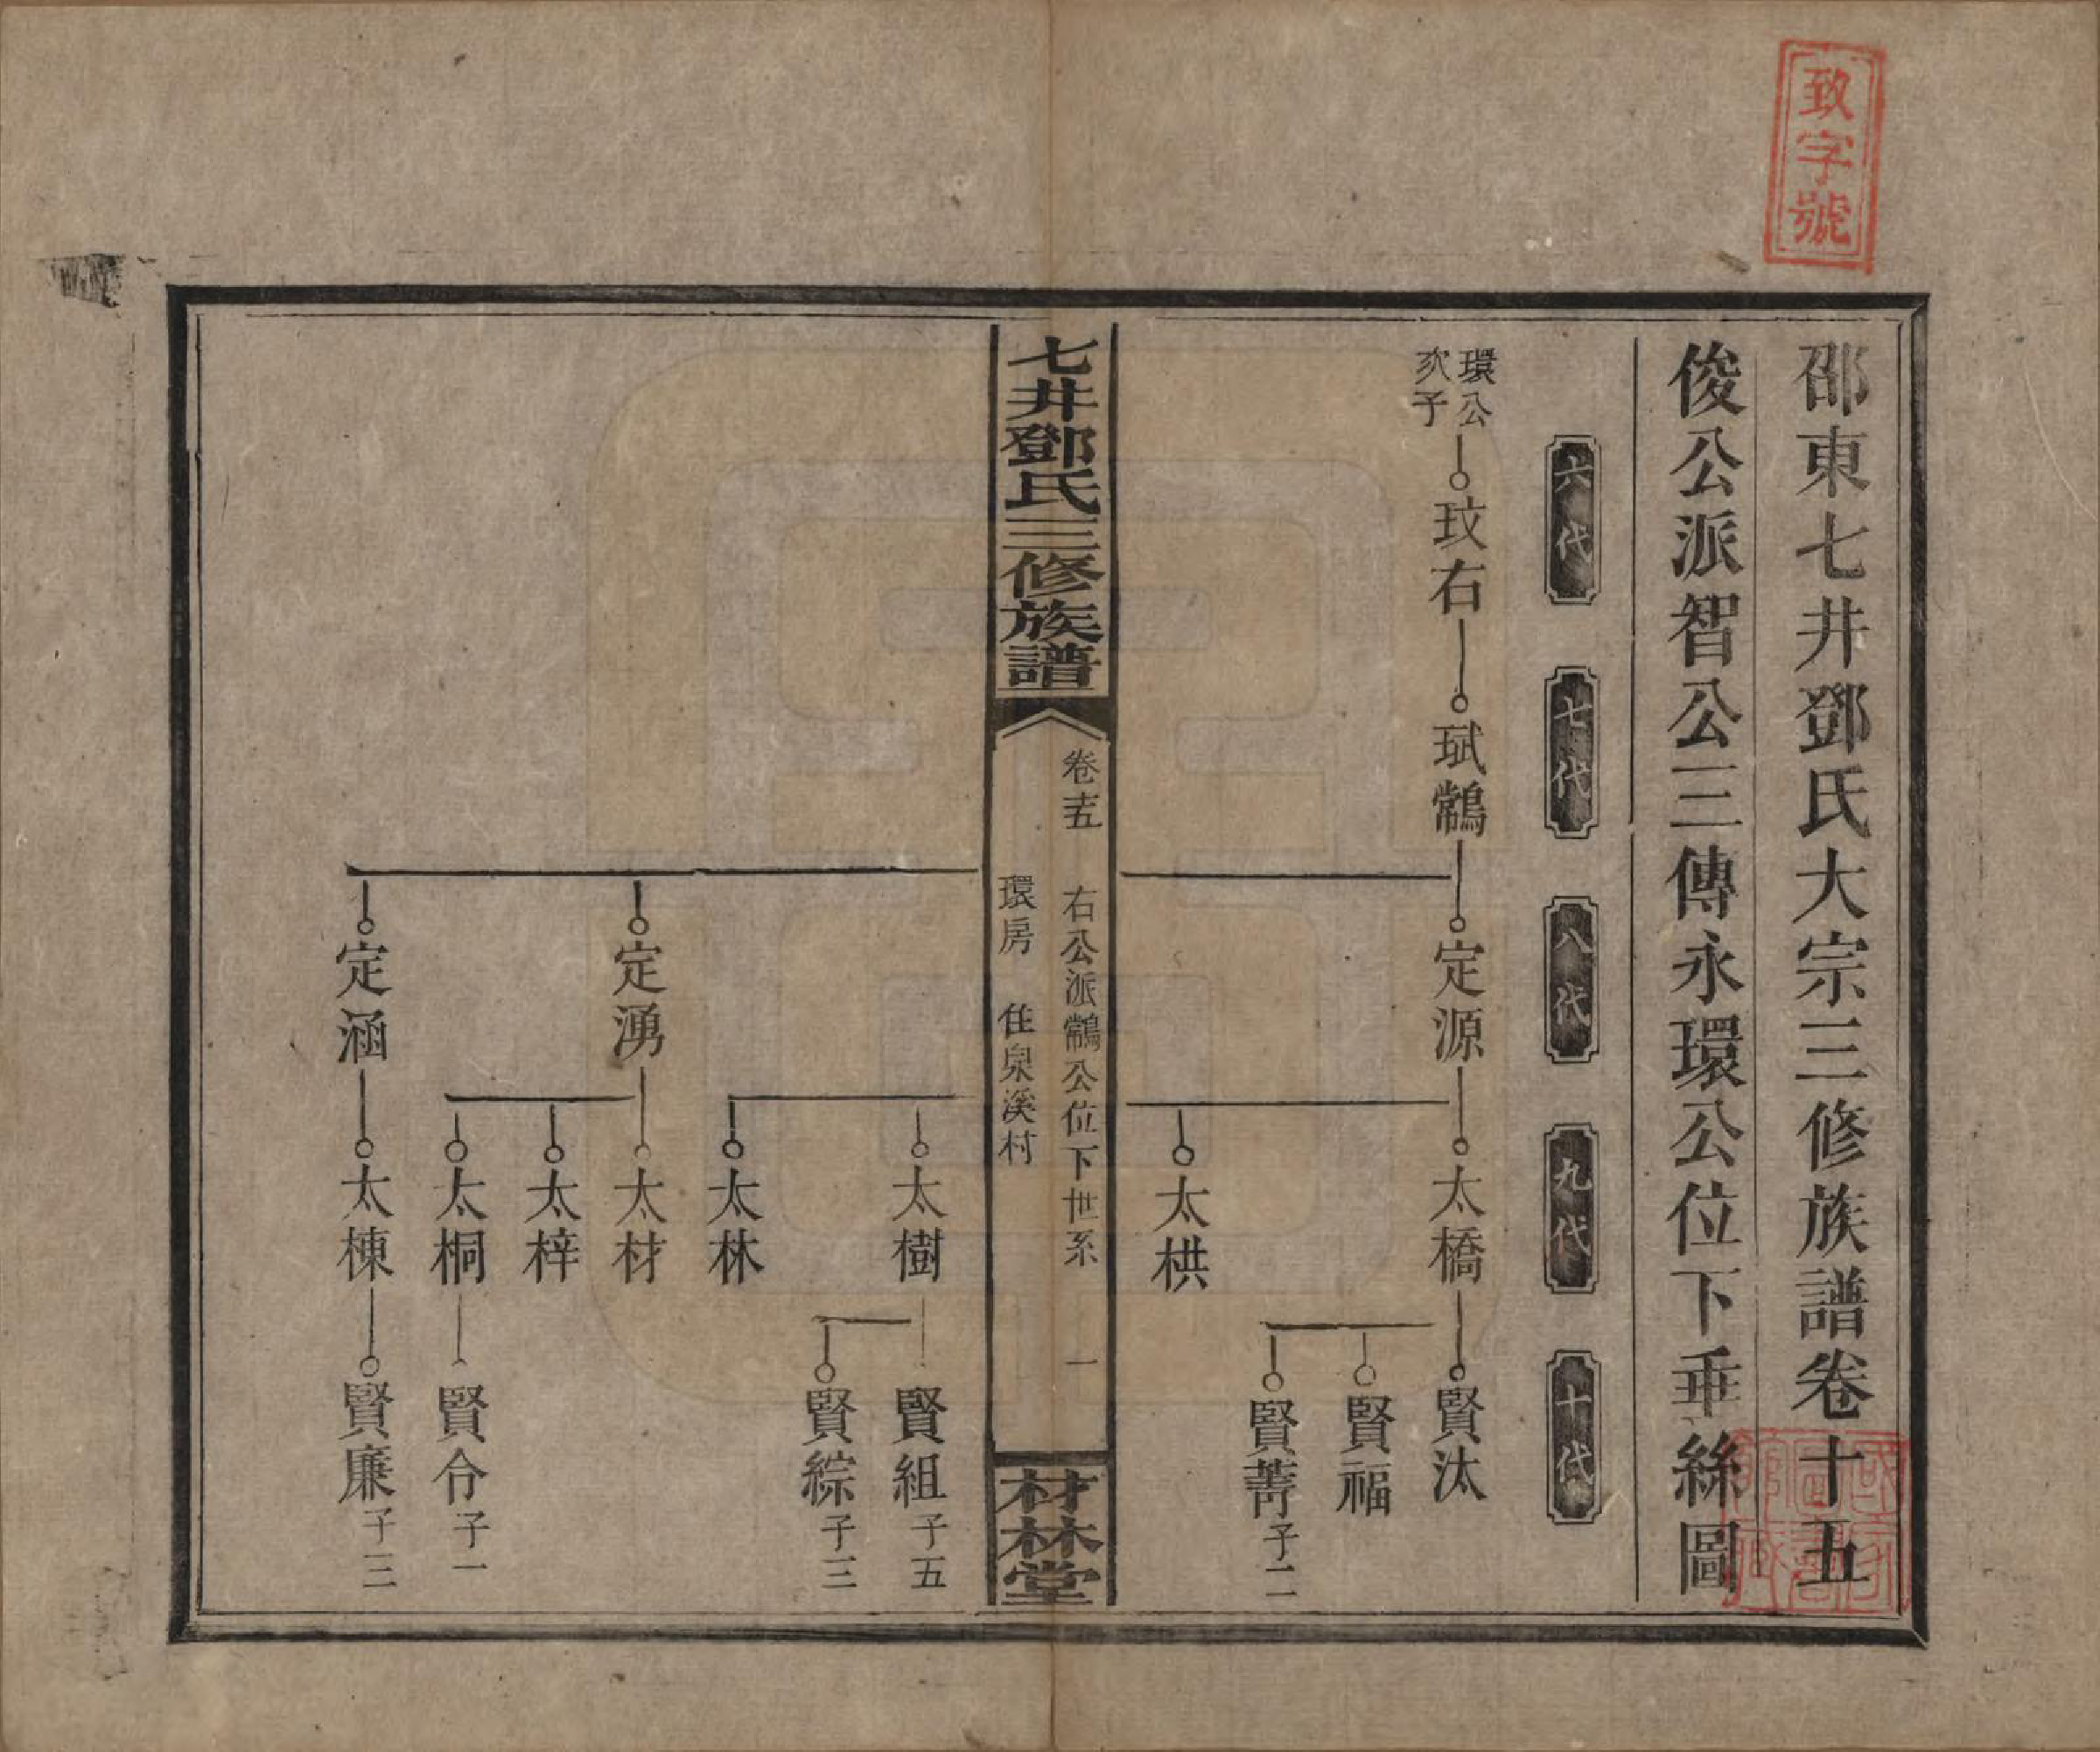 致字號
邵東七井鄧氏大宗三修族譜卷十五
俊公派智公三傳永環公位下垂絲圖
六代
七代
八代
九代
十代
環公
次子
玟右
珷鷮
定源
太橋
賢汰
賢福
賢菁子二
太栱
七井鄧氏三修族譜
卷十五
右公派公位下世系
一
環房
住泉溪村
材林堂
太樹
賢組子五
賢綜子三
太林
定湧
太材
太梓
太桐
賢令子一
定涵
太棟
賢廉子三